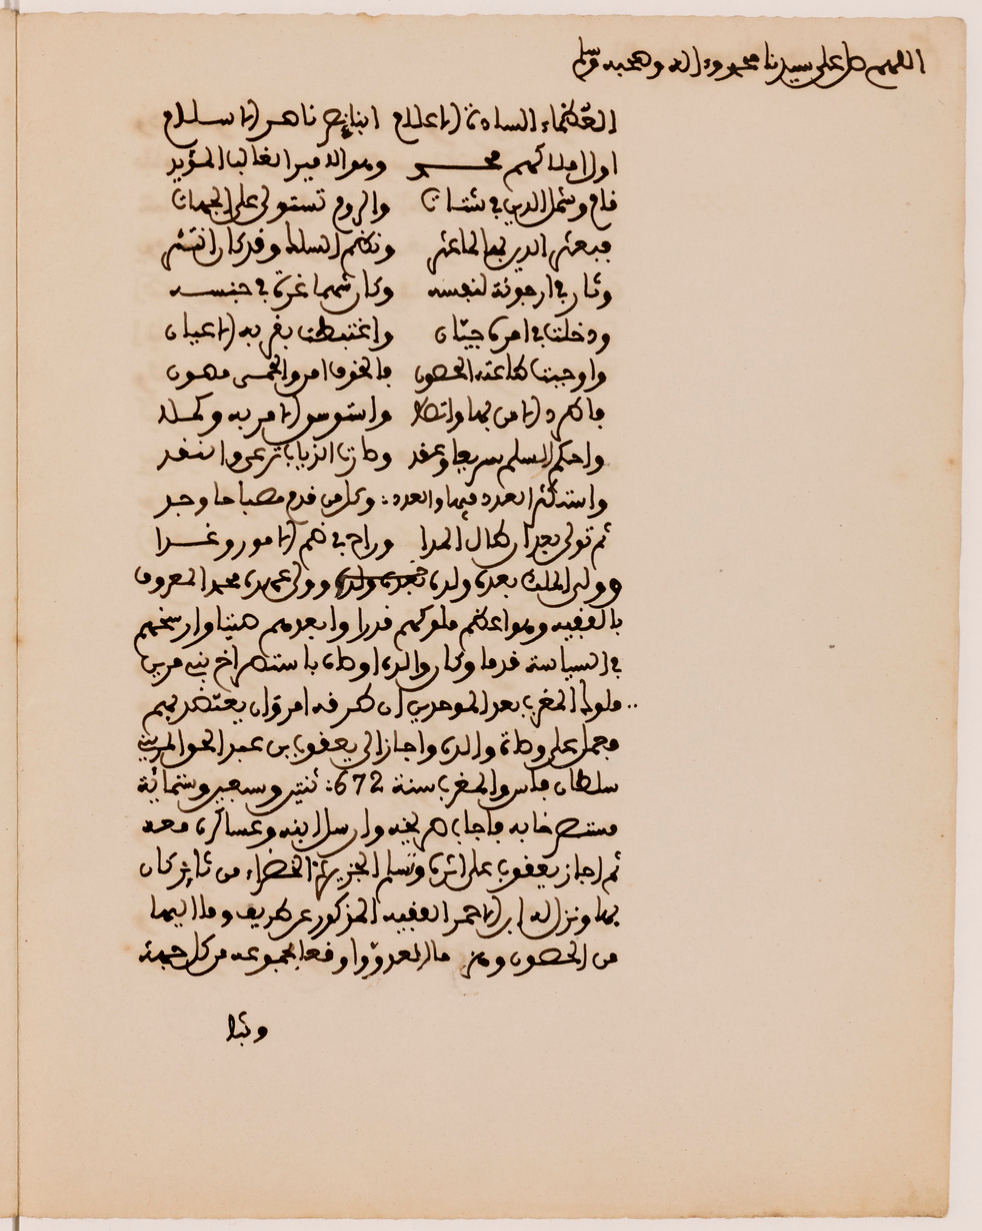 اللهم صل على سيدنا محمد وءاله وصحبه وسلم
العظماء السادة الاعلام ابناء نصر ناصر الاسلام
اول املاكهم محمد وهو الامير الغالب المؤيد
قام وشمل الدين في شتات والروم تستولي على الجهات
فبعثر الدين بها لما عثر ونظم السلك وقد كان انتثر
وثار في ارجونة لنفسه وكان شهما غرة في جنسه
ودخلت في امره جيان واغتبطت بقربه الاعيان
واوجبت طاعته الحصون فالخوف امن والحمى مصون
فاطرد الامن بها واتصلا واستوسق الامر به وكملا
واحكم السلم سريعا وعقد وصارت الذياب ترعى والنقد
واستكثر العدد فيها والعدد : وكل من قدم مصباحا وجد
ثم تولى بعد ان طال المدا وراح في هم الامور وغدا
وولي الملك بعده ولده وولي عهده محمد المعروف
بالفقيه وهو اعظم ملوكهم قدرا وابعدهم صيتا وارسخهم
في السياسة قدما وكان والده اوصاه باستصراخ بني مرين
ملوك المغرب بعد الموحدين ان طرقه امر وان يعتضد بهم
فعمل على وصاة والده واجاز الى يعقوب بن عبد الحق المريني
سلطان فاس والمغرب سنة 672: ثنتين وسبعين وستمائة
مستصرخا به فاجاب صريخه وارسل ابنه وعساكره معه
ثم اجاز يعقوب على اثره وتسلم الجزيرة الخضراء من ثاير كان
بها ونزل له ابن الاحمر الفقيه المذكور عن طريف وما اليها
من الحصون وهزم مالك العدو واوقعا بجموعه من كل جهة
وثبا